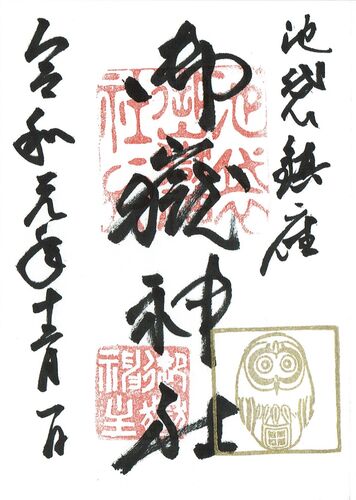 池袋鎮座
御嶽神社
令和元年十二月一日